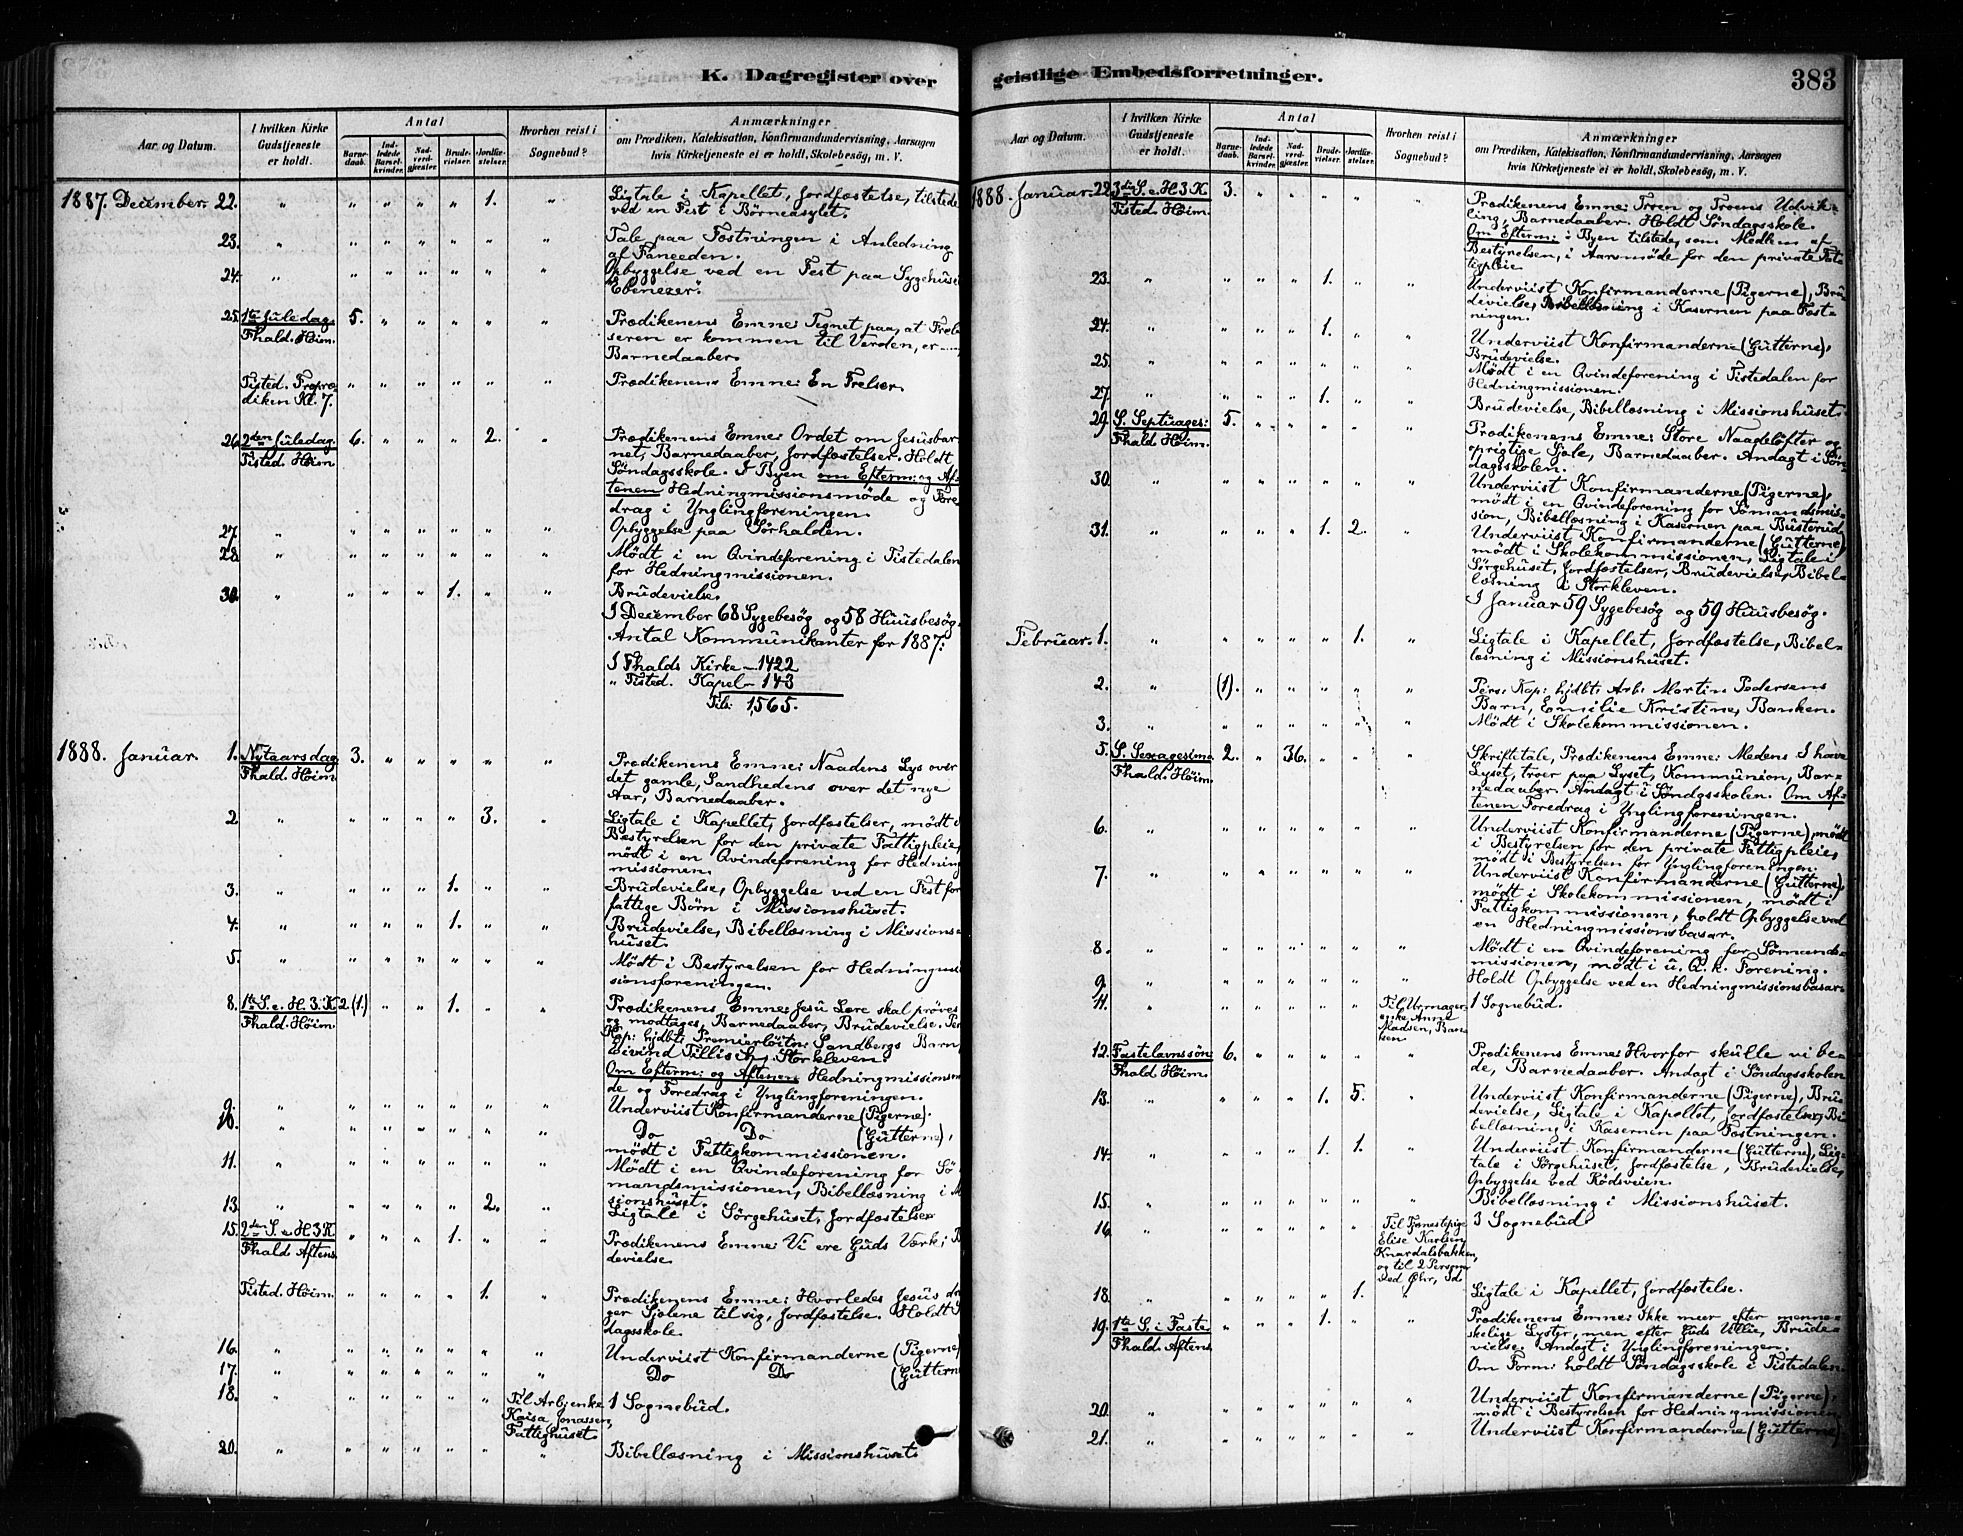 K. Dagregister over
Aar og Datum.
I hvilken Kirke Gudstjeneste er holdt.
Antal
Barnedaab.
Indledede Barselkvinder.
Nadverdgjæster.
Brudevielser.
Jordfæstelser.
Hvorhen reist i Sognebud?
Anmærkninger
om Prædiken, Katekisation, Konfirmandundervisning, Aarsagen
hvis Kirketjeneste ei er holdt, Skolebesøg, m. V.
1887. December. 22. " " " " " 1. " Ligtale i Kapellet, Jordfæstelse, tilstede
ved en Fest i Børneasylet.
23. " " " " " " " Tale paa Fæstningen i Anledning
af Faneeden.
24. " " " " " " " Opbyggelse ved en Fest paa Sygehuset
"Ebenezer".
25. 1ste Juledag. 5. " " " " " Prædikenens Emne: Tegnet paa, at Frel-
Fhald. Höim. seren er kommen til Verden, er —
Barnedaaber.
Tisted. Fropræ- " " " " " " Prædikenens Emne: En Frelser.
diken Kl. 7.
26. 2den Juledag. 6. " " " 2. " Prædikenens Emne: Ordet om Jesusbar-
Tisted. Höim. net, Barnedaaber, Jordfæstelser. Holdt
Søndagsskole. I Byen om Efterm: og Af-
tenen Hedningmissionsmöde og Fore-
drag i Ynglingforeningen.
27. " " " " " " " Opbyggelse paa Sörhalden.
28. " " " " " " " Mödt i en Qvindeforening i Tistedalen
for Hedningmissionen.
30. " " " " 1. " " Brudevielse.
I December 68 Sygebesög og 58 Huusbesög.
Antal Kommunikanter for 1887:
I Fhalds Kirke — 1422
" Tisted. Kapel — 143
Til: 1,565.
1888. Januar. 1. Nytaarsdag. 3. " " " " " Prædikenens Emne: Naadens Lys over
Fhald. Höim. det gamle, Sandhedens over det nye
Aar, Barnedaaber.
2. " " " " " 3. " Ligtale i Kapellet, Jordfæstelser, mödt i
Bestyrelsen for den private Fattigpleie,
mödt i en Qvindeforening for Hedning-
missionen.
3. " " " " 1. " " Brudevielse, Opbyggelse ved en Fest for
fattige Börn i Missionshuset.
4. " " " " 1. " " Brudevielse, Bibellæsning i Missions-
huset.
5. " " " " " " " Mödt i Bestyrelsen for Hedningmis-
sionsforeningen.
8. 1ste S. e. H. 3. K. 2 (1.) " " 1. " " Prædikenens Emne: Jesu Lære skal pröves
Fhald. Höim. og modtages, Barnedaaber, Brudevielse. Per
Kap: hjdbt: Premierlöitn: Sandbergs Barn,
Eivind Tillisch, Storkleven.
Om Efterm: og Aftenen Hedningmissionsmö-
de og Foredrag i Ynglingforeningen.
9. " " " " " " " Underviist Konfirmanderne (Pigerne).
10. " " " " " " " Do Do (Gutterne),
mödt i Fattigkommissionen.
11. " " " " " " " Mödt i en Qvindeforening for Sö-
mandsmissionen, Bibellæsning i Mis-
sionshuset.
13. " " " " " 2. " Ligtale i Sörgehuset, Jordfæstelser
15. 2den S. e. H 3 K. " " " 1. " " Prædikenens Emne: Vi ere Guds Værk; B
Fhald. Aftens. devielse
Tisted. Höim. " " " " 1. " Prædikenens Emne: Hvorledes Jesus dra-
ger Sjælene til sig, Jordfæstelse. Holdt S
dagsskole.
16. " " " " " " " Underviist Konfirmanderne (Pigerne)
17. " " " " " " " Do Do (Gutterne
18. " " " " " " Til Arbjenke 1 Sognebud.
Kaisa Jonassen,
Fattighuset.
20. " " " " " " " Bibellæsning i Missionshuset.
geistlige Embedsforretninger.
383
Aar og Datum.
I hvilken Kirke Gudstjeneste er holdt.
Antal
Barnedaab.
Indledede Barselkvinder.
Nadverdgjæster.
Brudevielser.
Jordfæstelser.
Hvorhen reist i Sognebud?
Anmærkninger
om Prædiken, Katekisation, Konfirmandundervisning, Aarsagen
hvis Kirketjeneste ei er holdt, Skolebesøg, m. V.
1888. Januar. 22. 3die S. e. H 3 K. 3. " " " " " Prædikenens Emne: Troen og Troens Udvik-
Tisted. Höim. ling, Barnedaaber. Holdt Söndagsskole.
Om Efterm: i Byen tilstede, som Medlem af
Bestyrelsen, i Aarsmöde for den private Fat-
tigpleie
23. " " " " 1. " " Underviist Konfirmanderne (Pigerne), Bru-
devielse, Bibellæsning i Kasernen paa Fæst-
ningen.
24. " " " " 1. " " Underviist Konfirmanderne (Gutterne),
Brudevielse.
25. " " " " " " " Mödt i en Qvindeforening i Tistedalen for
Hedningmissionen.
27. " " " " 1. " " Brudevielse, Bibellæsning i Missionshuset.
29. S. Septuages: 5. " " " " " Prædikenens Emne: Store Naadelöfter og
Fhald. Höim. oprigtige Sjæle, Barnedaaber. Andagt i Sön-
dagsskolen.
30. " " " " " " " Underviist Konfirmanderne (Pigerne),
mödt i en Qvindeforening for Sömandsmis-
sion, Bibellæsning i Kasernen paa Busterud.
31. " " " " 1. 2. " Underviist Konfirmanderne (Gutterne)
mödt i Skolekommissionen, Ligtale i
Sörgehuset, Jordfæstelser, Brudevielse, Bibel-
læsning i Storkleven.
I Januar 59 Sygebesög og 59 Huusbesög.
Februar. 1. " " " " " 1. " Ligtale i Kapellet, Jordfæstelse, Bibel-
læsning i Missionshuset.
2. " (1). " " " " " Pers: Kap: hjdbt: Arb: Martin Pedersens
Barn, Emilie Kristine, Banken.
3. " " " " " " " Mödt i Skolekommissionen.
5. S. Sexagesima 2. " 36. " " " Skriftetale, Prædikenens Emne: Medens I have
Fhald. Höim. Lyset, troer paa Lyset, Kommunion, Bar-
nedaaber. Andagt i Söndagsskolen. Om Af-
tenen Foredrag i Ynglingforeningen.
6. " " " " " " " Underviist Konfirmanderne (Pigerne), mödt
i Bestyrelsen for den private Fattigpleie,
mödt i Bestyrelsen for Ynglingforeningen.
7. " " " " " " " Underviist Konfirmanderne (Gutterne),
mödt i Skolekommissionen, mödt i
Fattigkommissionen, holdt Opbyggelse ved
en Hedningmissionsbasar.
8. " " " " " " " Mödt i en Qvindeforening for Sömands-
missionen, mödt i u. Q. k. Forening.
9. " " " " " " " Holdt Opbyggelse ved en Hedningmissionsbasar.
11. " " " " " " Til Urmager- 1 Sognebud.
enke Anne
Madsen, Ban-
ken.
12. Fastelavnssön: 6. " " " " " Prædikenens Emne: Hvorfor skulle vi be-
Fhald. Höim. de, Barnedaaber. Andagt i Söndagsskolen
13. " " " " 1. 5. " Underviist Konfirmanderne (Pigerne), Bru-
devielse, Ligtale i Kapellet, Jordfæstelser, Bi-
bellæsning i Kasernen paa Fæstningen.
14. " " " " 1. 1. " Underviist Konfirmanderne (Gutterne), Lig-
tale i Sörgehuset, Jordfæstelse, Brudevielse,
Opbyggelse ved Rödsveien.
15. " " " " " " " Bibellæsning i Missionshuset.
16. " " " " " " Til Tjenestepige 3 Sognebud.
Elise Karlsen,
Knardalsbakken,
og til 2 Personer
ved Öhr, Id
18. " " " " " 1. " Ligtale i Kapellet, Jordfæstelse.
19. 1ste S. i Faste. " " " 1. " " Prædikenens Emne: Ikke meer efter menne-
Fhald. Aftens. skelige Lyster, men efter Guds Villie, Brude-
vielse. Andagt i Ynglingforeningen.
Om Form: holdt Söndagsskole i Tistedalen.
20. " " " " " " " Underviist Konfirmanderne (Pigerne),
mödt i Bestyrelsen for Hedningmissionen
21. " " " " " " " Underviist Konfirmanderne (Gutterne)